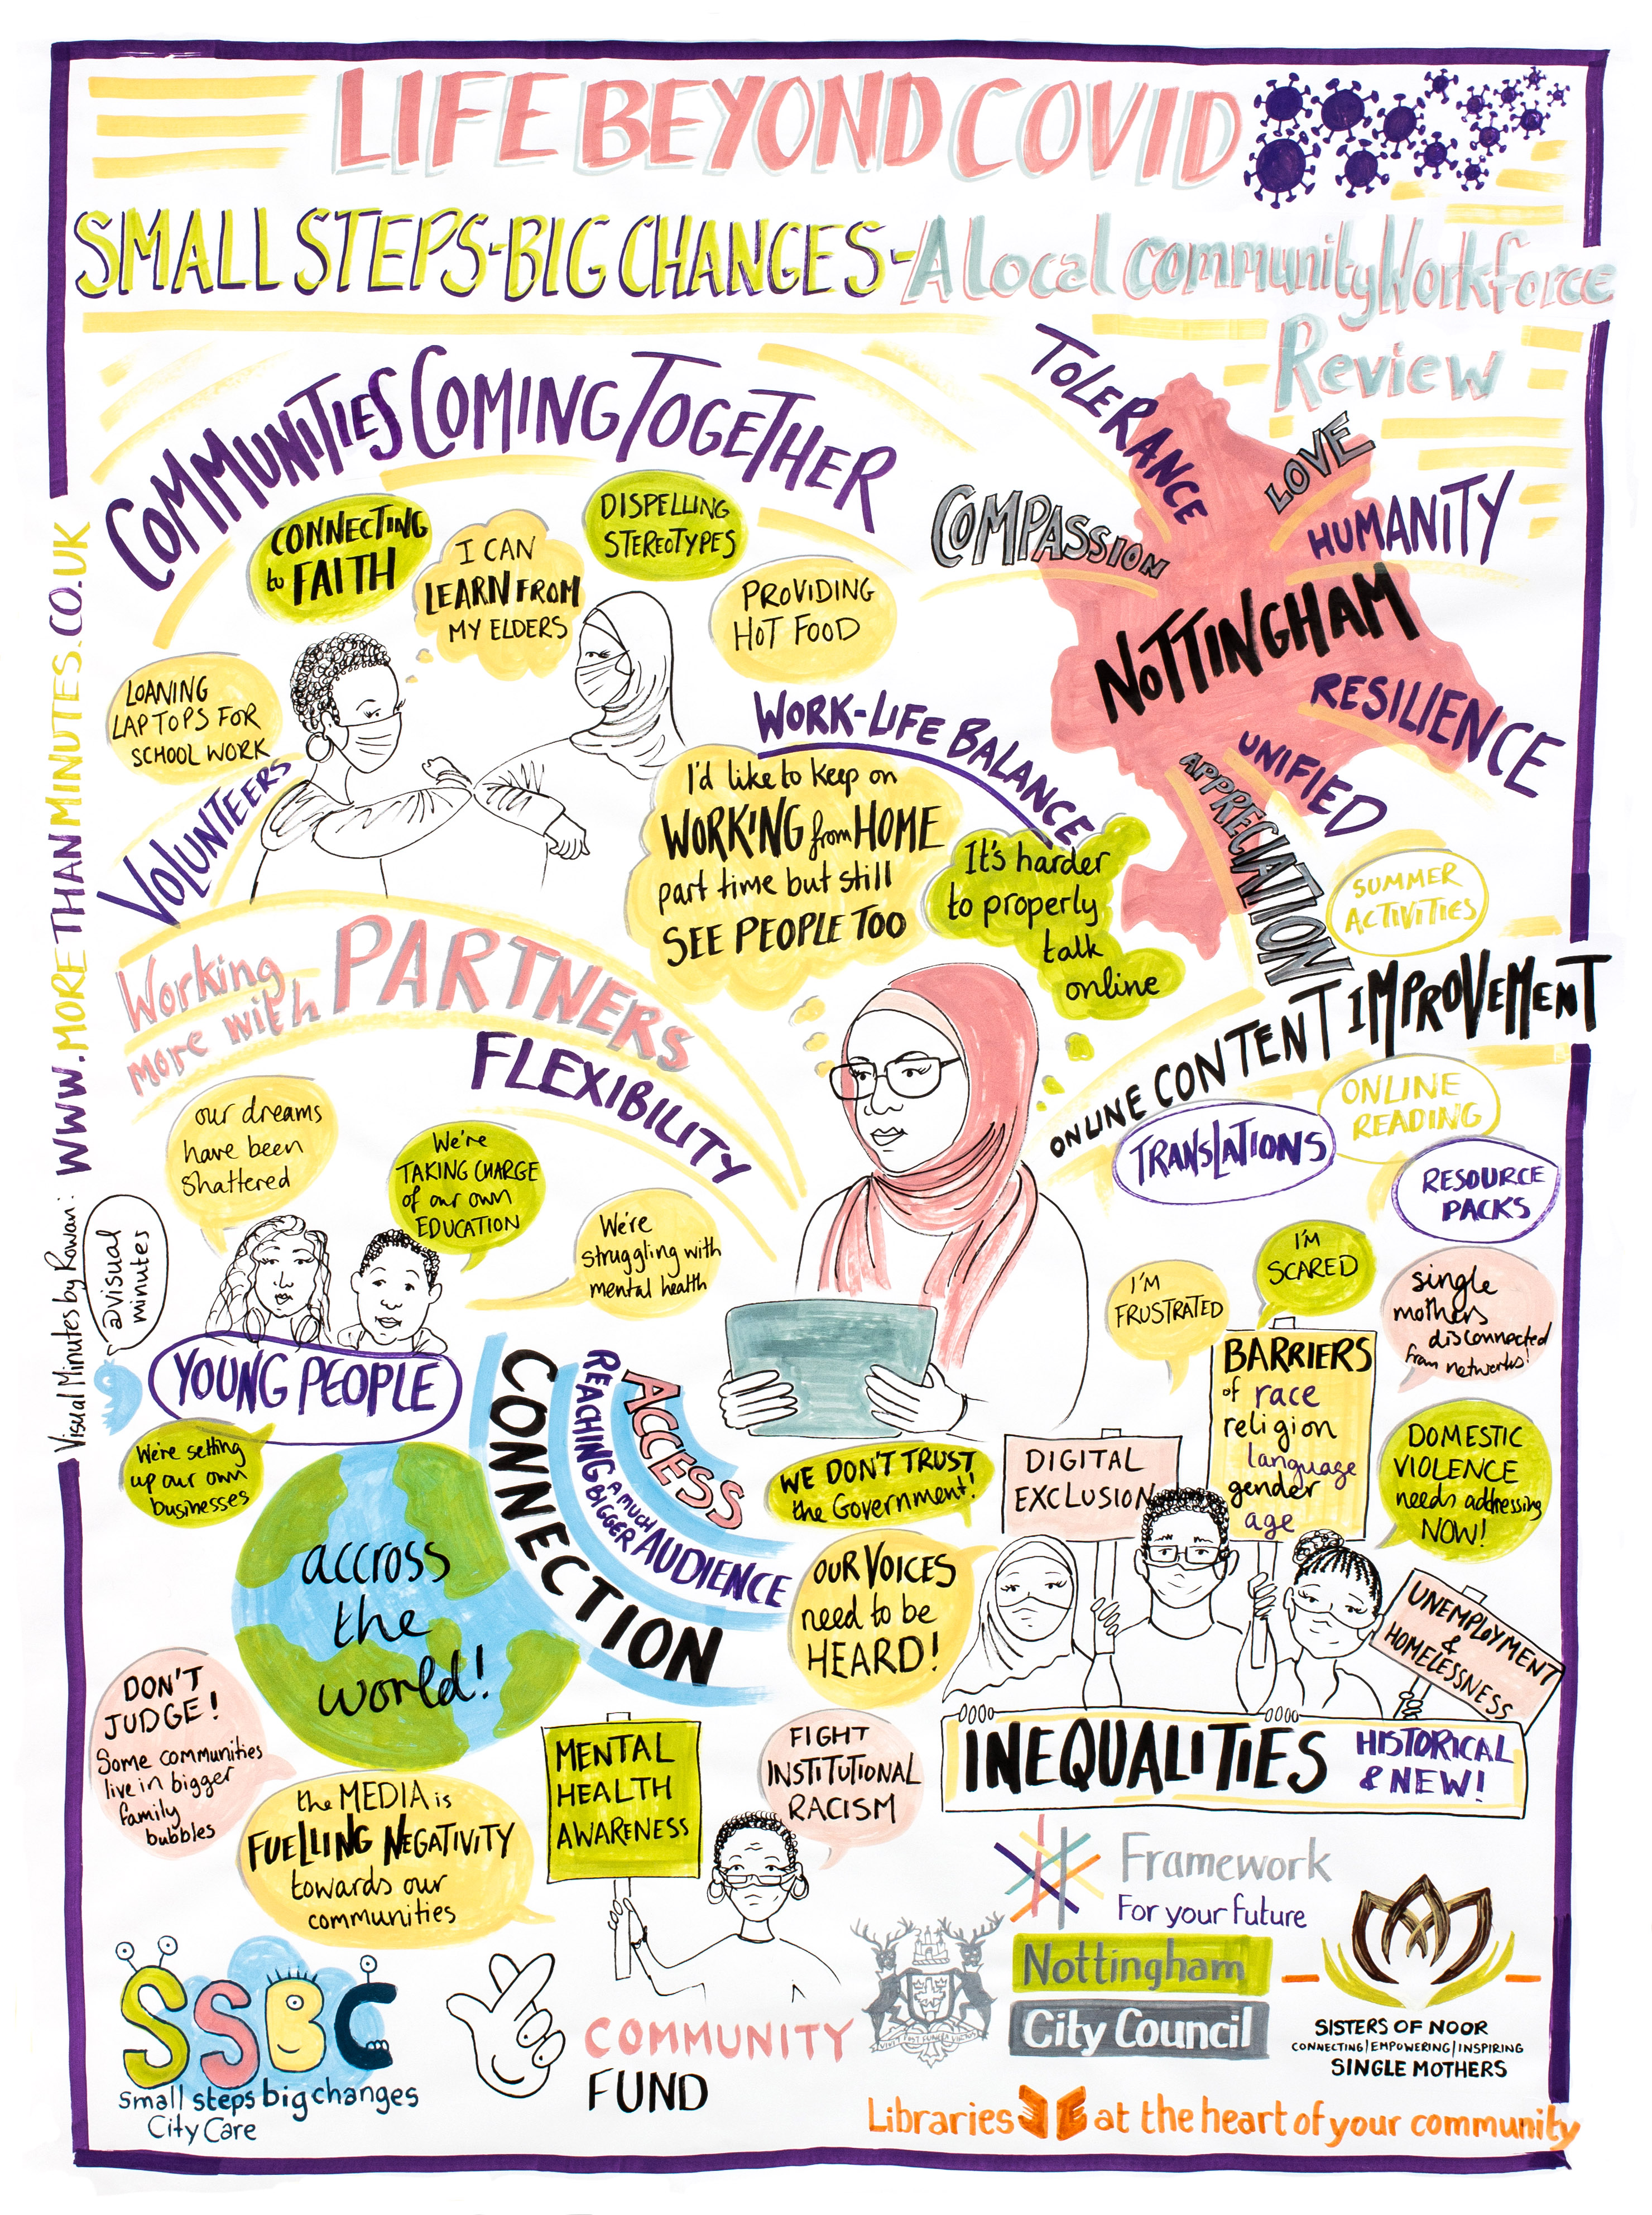 LIFE BEYOND COVID
SMALL STEPS-BIG CHANGES-A Local Community Workforce
Review
COMMUNITIES COMING TOGETHER
CONNECTING
to FAITH
I CAN
LEARN FROM
MY ELDERS
DISPELLING
STEREOTYPES
PROVIDING
HOT FOOD
LOANING
LAPTOPS FOR
SCHOOL WORK
VOLUNTEERS
TOLERANCE
LOVE
COMPASSION
HUMANITY
NOTTINGHAM
RESILIENCE
UNIFIED
APPRECIATION
WORK-LIFE BALANCE
I'd like to keep on
WORKING from HOME
part time but still
SEE PEOPLE TOO
It's harder
to properly
talk
online
Working
more with PARTNERS
FLEXIBILITY
SUMMER
ACTIVITIES
ONLINE CONTENT IMPROVEMENT
ONLINE
READING
TRANSLATIONS
RESOURCE
PACKS
our dreams
have been
shattered
We're
TAKING CHARGE
of our own
EDUCATION
We're
struggling with
mental health
YOUNG PEOPLE
We're setting
up our own
businesses
CONNECTION
REACHING A MUCH
BIGGER AUDIENCE
ACCESS
accross
the
world!
I'M
FRUSTRATED
I'M
SCARED
single
mothers
disconnected
from networks!
BARRIERS
of race
religion
language
gender
age
DIGITAL
EXCLUSION
DOMESTIC
VIOLENCE
needs addressing
NOW!
WE DON'T TRUST
the Government!
OUR VOICES
need to be
HEARD!
UNEMPLOYMENT
&
HOMELESSNESS
INEQUALITIES
HISTORICAL
& NEW!
DON'T
JUDGE!
Some communities
live in bigger
family
bubbles
the MEDIA is
FUELLING NEGATIVITY
towards our
communities
MENTAL
HEALTH
AWARENESS
FIGHT
INSTITUTIONAL
RACISM
SSBC
Small steps big changes
City Care
COMMUNITY
FUND
Framework
For your future
VIVIT POST FUNERA VIRTUS
Nottingham
City Council
SISTERS OF NOOR
CONNECTING|EMPOWERING|INSPIRING
SINGLE MOTHERS
Libraries at the heart of your community
Visual Minutes by Rowan: WWW.MORETHANMINUTES.CO.UK
@visual
minutes